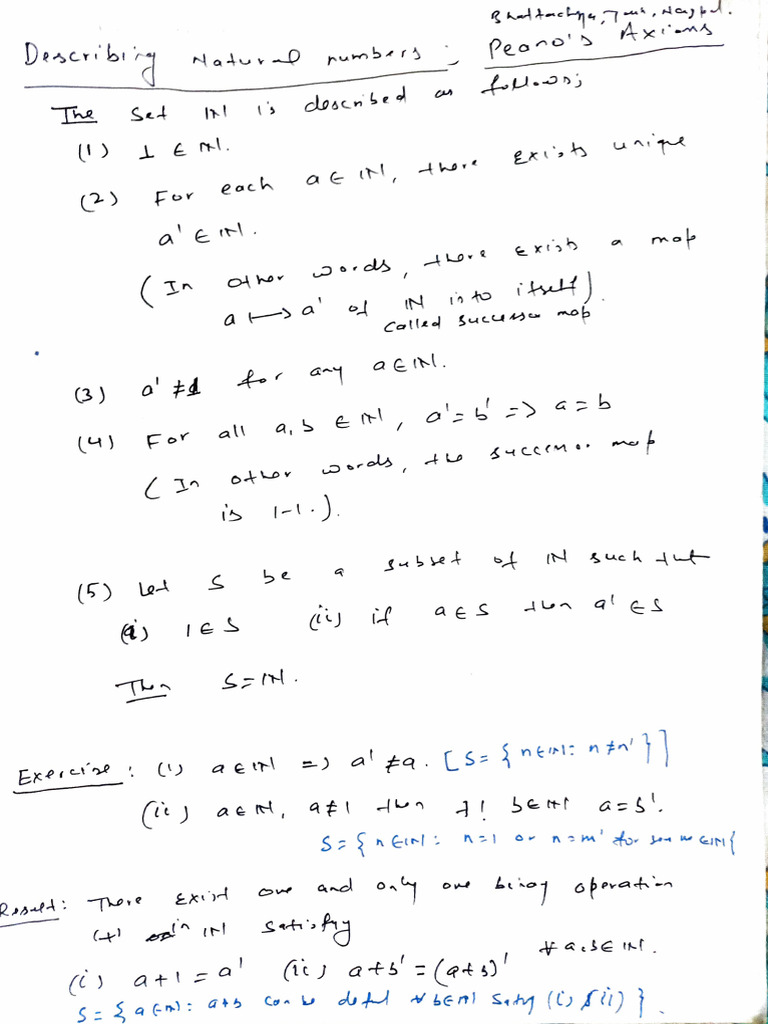 Bhattacharya, Jain, Nagpal.
Describing Natural numbers; Peano's Axioms
The Set ℕ is described as follows;
(1) 1 ∈ ℕ.
(2) For each a ∈ ℕ, there exists unique
a' ∈ ℕ.
(In other words, there exists a map
a ↦ a' of ℕ into itself).
called successor map
(3) a' ≠ 1 for any a ∈ ℕ.
(4) For all a, b ∈ ℕ, a' = b' => a = b
(In other words, the successor map
is 1-1.).
(5) Let S be a subset of ℕ such that
(i) 1 ∈ S (ii) if a ∈ S then a' ∈ S
Then S = ℕ.
Exercise: (i) a ∈ ℕ => a' ≠ a. [S = {n ∈ ℕ: n ≠ n'}]
(ii) a ∈ ℕ, a ≠ 1 then ∃! b ∈ ℕ a = b'.
S = {n ∈ ℕ: n = 1 or n = m' for some m ∈ ℕ}
Result: There exist one and only one binary operation
(+) in ℕ satisfying
(i) a + 1 = a' (ii) a + b' = (a + b)' ∀ a, b ∈ ℕ.
S = {a ∈ ℕ: a + b can be defined ∀ b ∈ ℕ satisfying (i) & (ii)}.